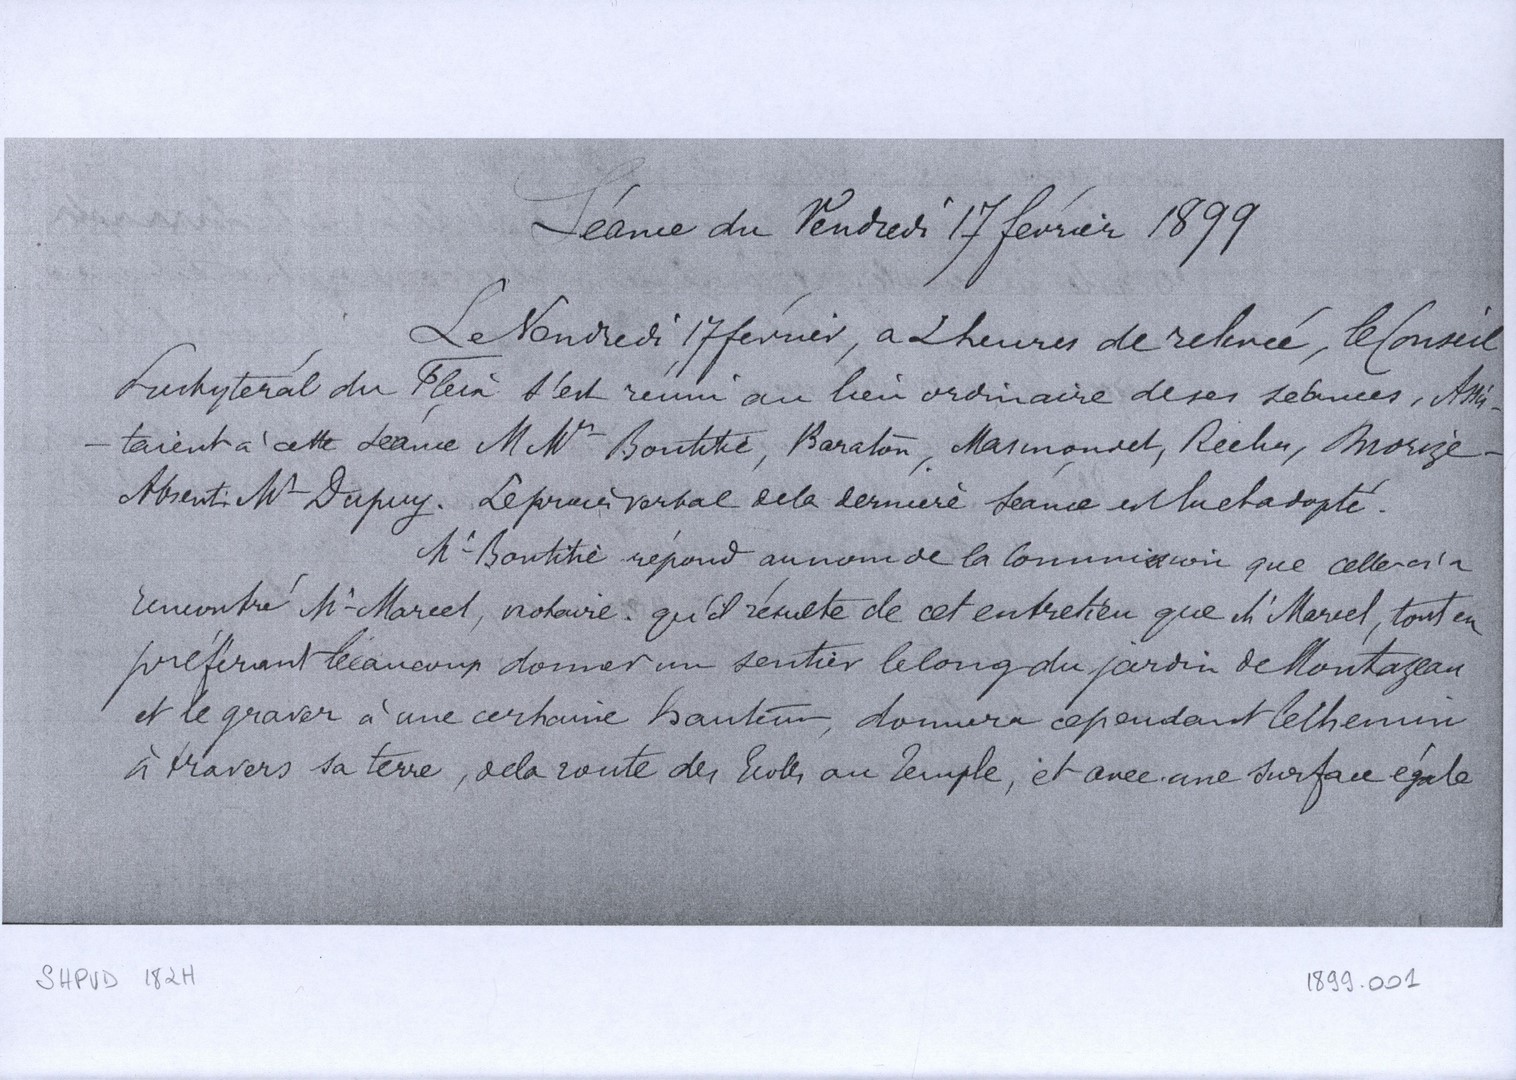 Séance du Vendredi 17 février 1899
Le Vendredi 17 février, a 2 heures de relevée, le Conseil
Presbytéral du Fleix s'est réuni au lieu ordinaire de ses séances, Assis-
-taient à cette séance M Mrs Boutitié, Baraton, Masmondet, Morize-
Absent: Mr Dupuy. Le procès verbal de la dernière séance est lu et adopté.
Mr Boutitié répond au nom de la Commission que celle-ci a
rencontré Mr Marcel, notaire. qu'il résulte de cet entretien que Mr Marcel, tout en
préférant beaucoup donner un sentier le long du jardin de Montazeau
et le graver à une certaine hauteur, donnera cependant le Chemin
à travers sa terre, de la route des Ecoles au Temple, et avec une surface égale
SHPVD 182H
1899.001